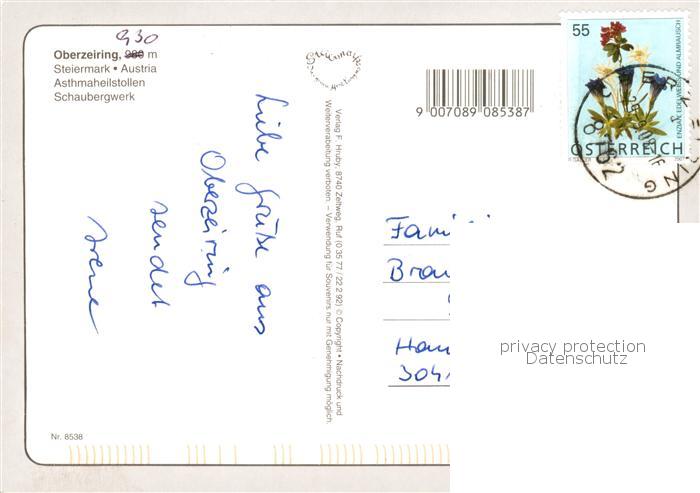 930
Oberzeiring, 980 m
Steiermark • Austria
Asthmaheilstollen
Schaubergwerk
Steiermark
9 007089 085387
55
ENZIAN, EDELWEISS UND ALMRAUSCH
ÖSTERREICH
8762
Liebe Grüße aus
Oberzeiring
sendet
Irene
Verlag F. Hruby, 8740 Zeltweg, Ruf (0 35 77 / 22 2 92) © Copyright • Nachdruck und
Weiterverarbeitung verboten. – Verwendung für Souvenirs nur mit Genehmigung möglich.
Fami
Brau
Han
304
privacy protection
Datenschutz
Nr. 8538